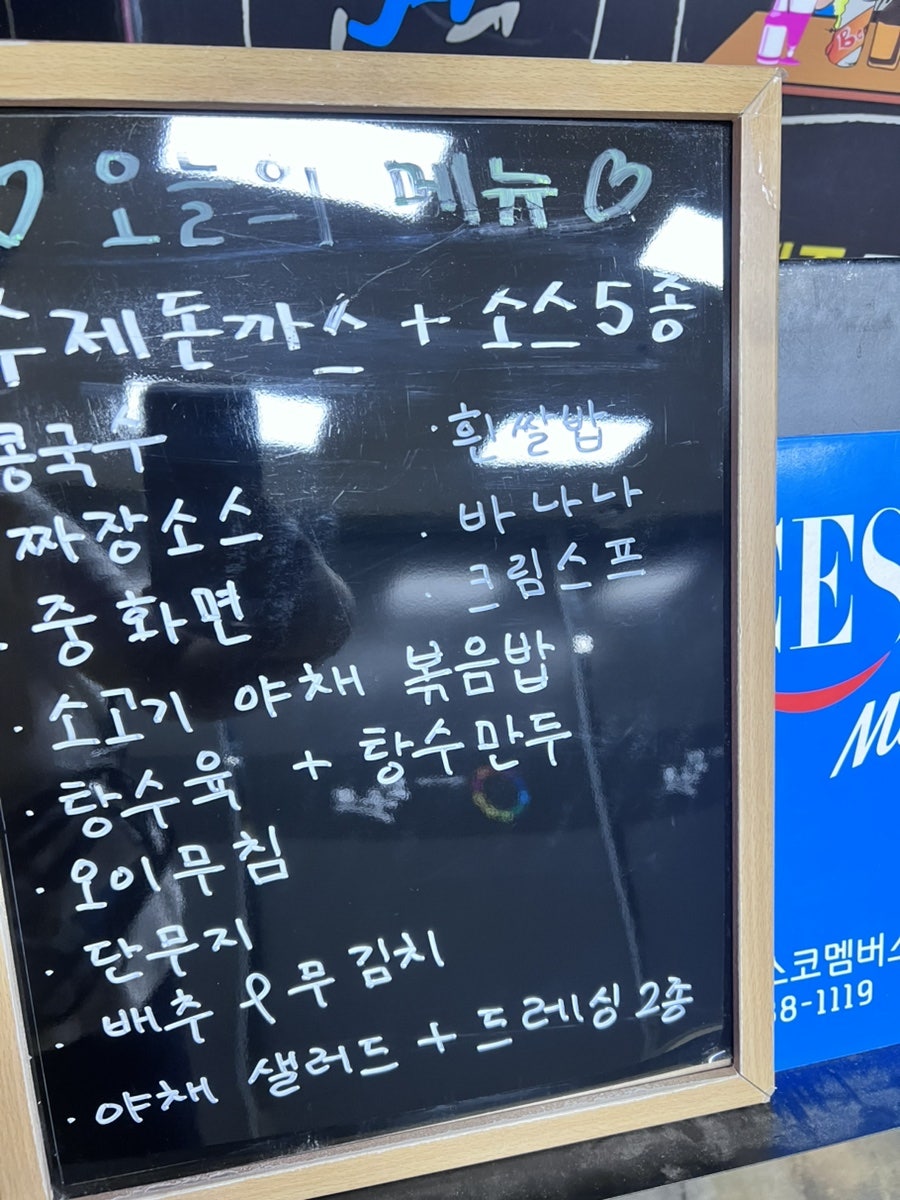 ♡ 오늘의 메뉴 ♡
수제돈까스 + 소스 5종
콩국수
· 흰쌀밥
짜장소스
· 바나나
· 중화면
· 크림스프
· 소고기 야채 볶음밥
· 탕수육 + 탕수만두
· 오이무침
· 단무지
· 배추 & 무김치
· 야채 샐러드 + 드레싱 2종
스코멤버스
8-1119